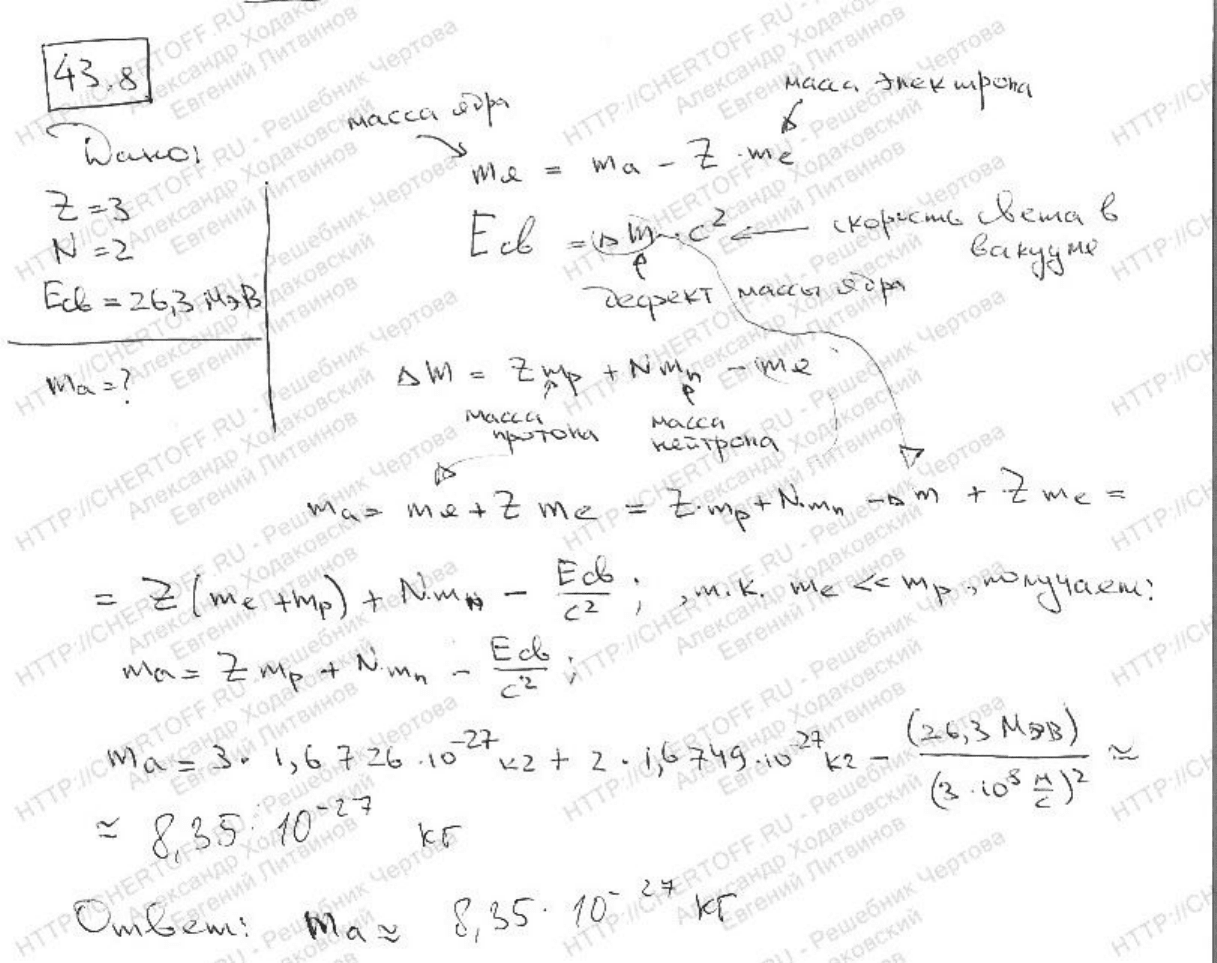 43.8
Дано:
Z = 3
N = 2
Eсв = 26,3 МэВ
mа = ?
масса ядра
масса электрона
mя = mа − Z · me
Eсв = Δm · c²
скорость света в вакууме
дефект массы ядра
Δm = Z mp + N mn − mя
масса протона
масса нейтрона
mа = mя + Z me = Z · mp + N · mn − Δm + Z me =
= Z(me + mp) + N · mn − Eсв/c² ; , т.к. me << mp, получаем:
mа = Z mp + N · mn − Eсв/c² ;
mа = 3 · 1,6726 · 10⁻²⁷ кг + 2 · 1,6749 · 10⁻²⁷ кг − (26,3 МэВ)/(3 · 10⁸ м/с)² ≃
≃ 8,35 · 10⁻²⁷ кг
Ответ: mа ≃ 8,35 · 10⁻²⁷ кг
HTTP://CHERTOFF.RU - Решебник Чертова
Александр Ходаковский
Евгений Литвинов